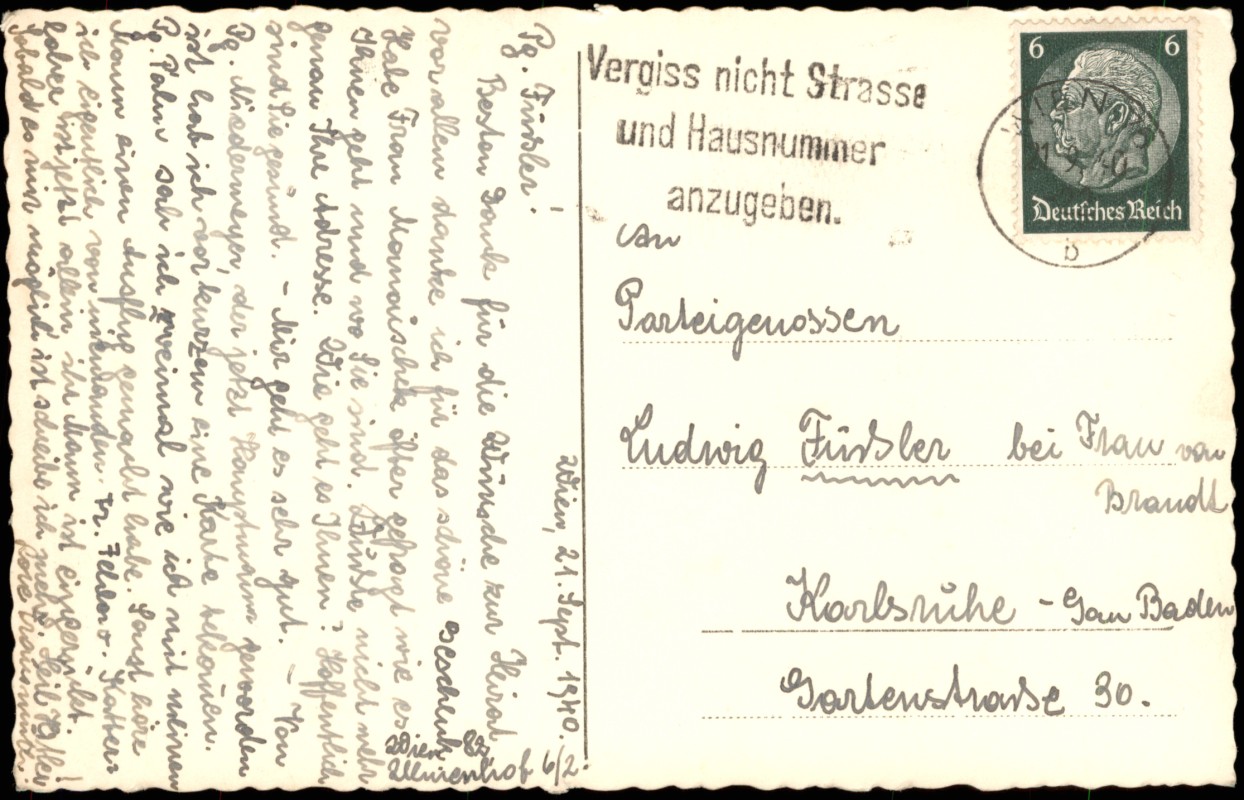 Wien, 21. Sept. 1940.
Pg. Füssler!
Besten Dank für die Wünsche zur Heirat
vor allem danke ich für das schöne Geschenk
Habe Frau Manouschek öfter gefragt wie es
Ihnen geht und wo Sie sind. Wußte nicht mehr
genau Ihre Adresse. Wie geht es Ihnen? Hoffentlich
sind Sie gesund. - Mir geht es sehr gut. - Von
Pg. Niedermeyer, der jetzt Hauptmann geworden
ist hab ich vor kurzem eine Karte bekommen.
Pg. Pahn sah ich zweimal wie ich mit meinem
Mann einen Ausflug gemacht habe. Sonst höre
ich eigentlich von niemandem. Fr.
lebt jetzt allein ihr Mann ist eingerückt.
Sobald es mir möglich ist schreibe ich mehr. Heil Hitler!
Wien 82,
6/2.
Vergiss nicht Strasse
und Hausnummer
anzugeben.
6 6
Deutsches Reich
WIEN
b
An
Parteigenossen
Ludwig Füssler bei Frau von
Brandt
Karlsruhe - Gau Baden
Gartenstraße 30.